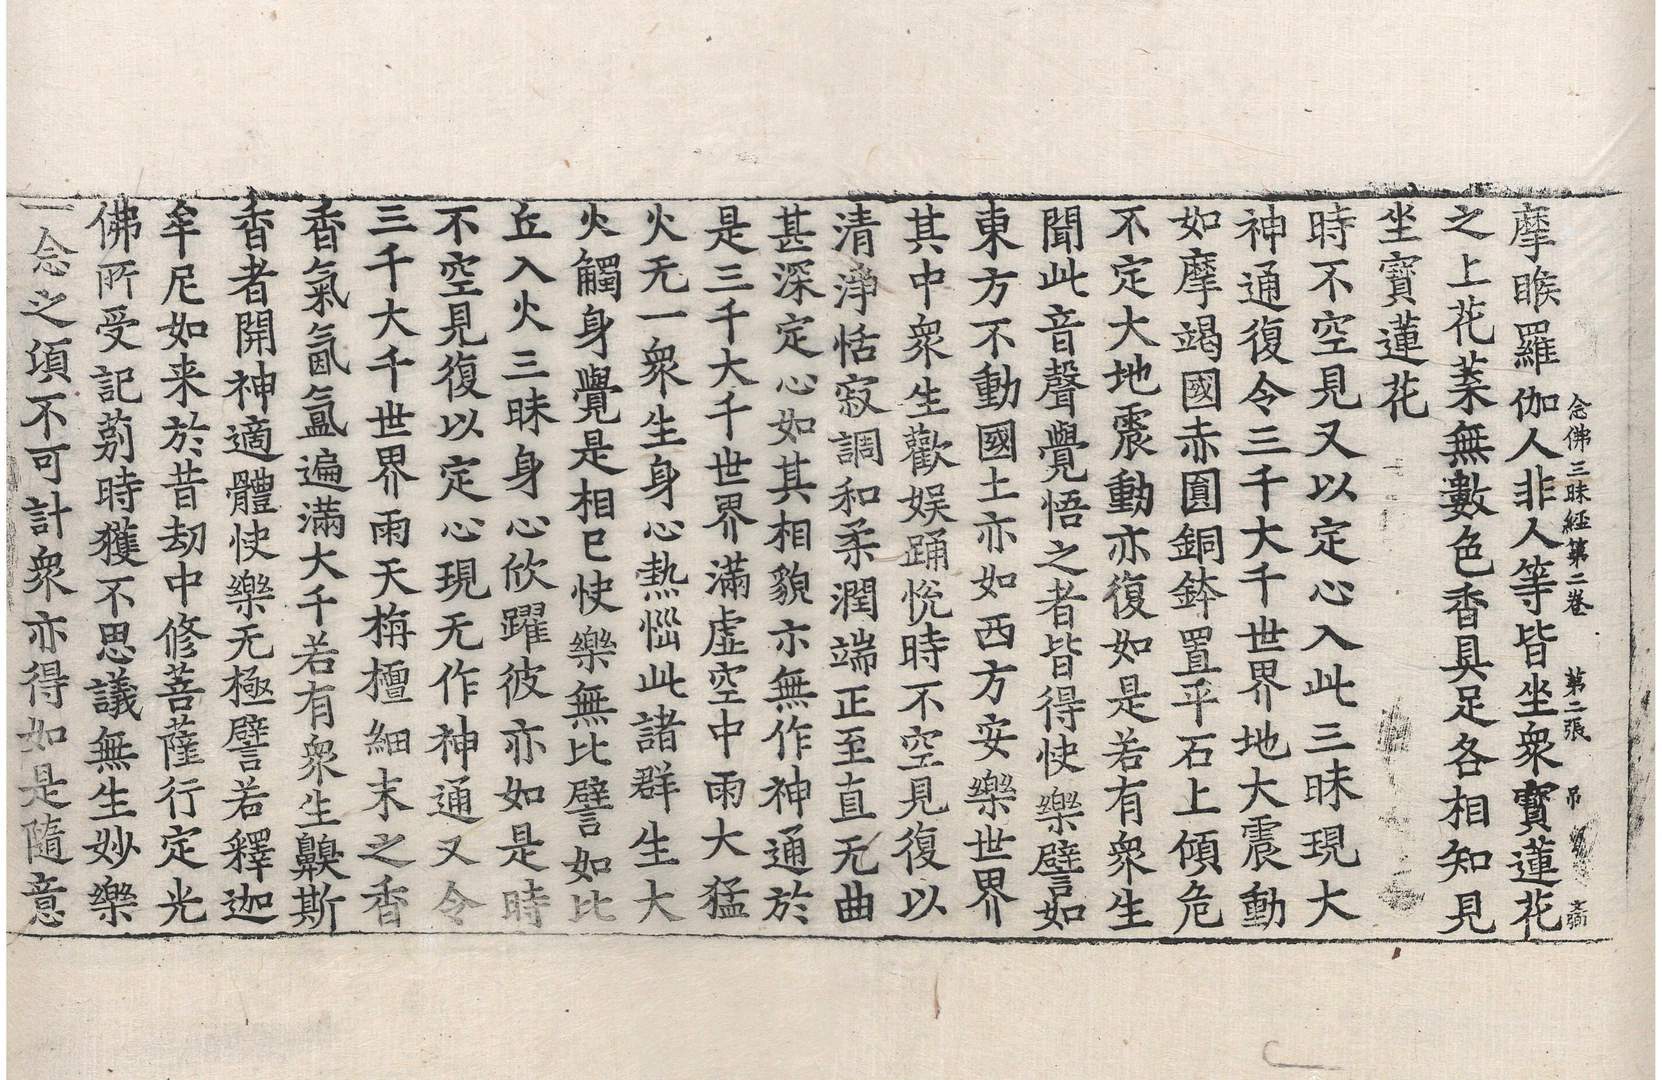 念佛三昧経第二巻 第二張 吊
摩睺羅伽人非人等皆坐衆寶蓮花
之上花葉無數色香具足各相知見
坐寶蓮花
時不空見又以定心入此三昧現大
神通復令三千大千世界地大震動
如摩竭國赤圓銅鉢置平石上傾危
不定大地震動亦復如是若有衆生
聞此音聲覺悟之者皆得快樂譬如
東方不動國土亦如西方安樂世界
其中衆生歡娛踊恱時不空見復以
清淨恬寂調和柔潤端正至直无曲
甚深定心如其相貌亦無作神通於
是三千大千世界滿虛空中雨大猛
火无一衆生身心熱惱此諸群生大
火觸身覺是相已快樂無比譬如比
丘入火三昧身心欣躍彼亦如是時
不空見復以定心現无作神通又令
三千大千世界雨天栴檀細末之香
香氣氤氳遍滿大千若有衆生齅斯
香者開神適體快樂无極譬若釋迦
牟尼如来於昔劫中修菩薩行定光
佛所受記莂時獲不思議無生妙樂
一念之頃不可計衆亦得如是隨意